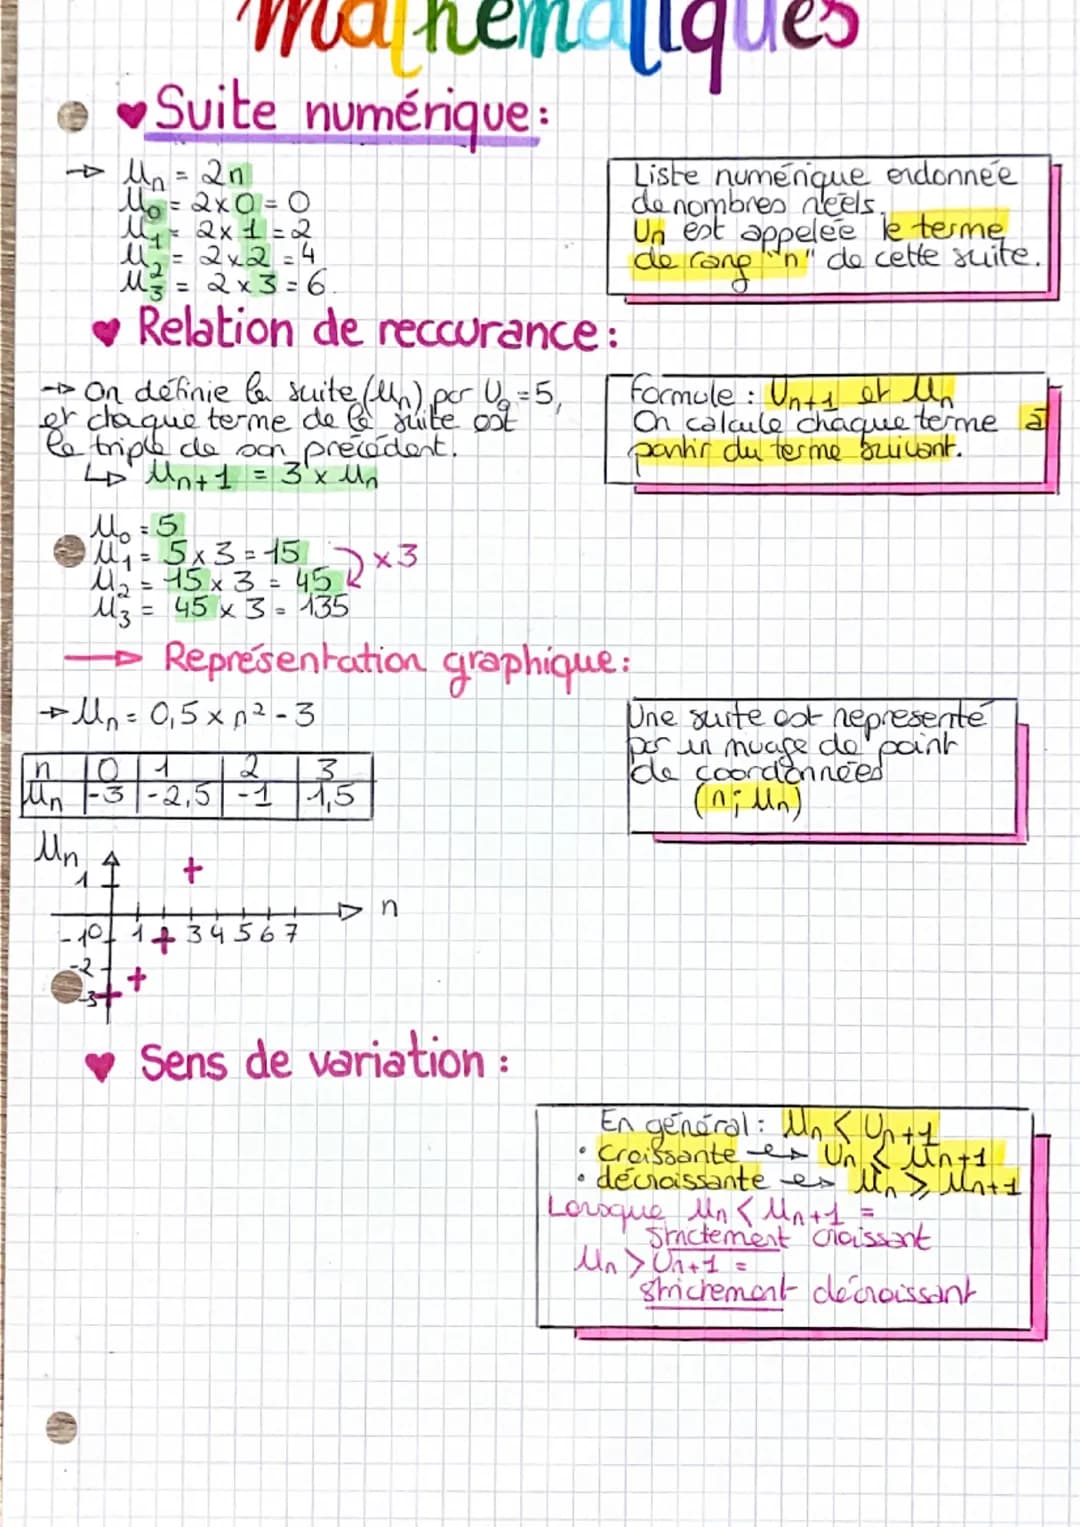 Mathématiques
Suite numérique:
→ Un = 2n
U0 = 2x0 = 0
U1 = 2x1 = 2
U2 = 2x2 = 4
U3 = 2x3 = 6.
Liste numérique ordonnée
de nombres réels.
Un est appelée le terme
de rang "n" de cette suite.
Relation de reccurance:
→ On définie la suite (Un) par U0 = 5,
et chaque terme de la suite est
le triple de son précédent.
↳ Un+1 = 3 x Un
Formule : Un+1 et Un
On calcule chaque terme à
partir du terme suivant.
U0 = 5
U1 = 5x3 = 15
x3
U2 = 15x3 = 45
U3 = 45x3 = 135
→ Représentation graphique:
→ Un = 0,5 x n² - 3
n 0 1 2 3
Un -3 -2,5 -1 1,5
Une suite est representé
par un nuage de point
de coordonnées
(n; Un)
Un
1
n
-1 0 1 3 4 5 6 7
-2
-3
Sens de variation :
En général: Un < Un+1
• Croissante → Un ≤ Un+1
• décroissante → Un ≥ Un+1
Lorsque Un < Un+1 =
strictement croissant
Un > Un+1 =
strictement décroissant